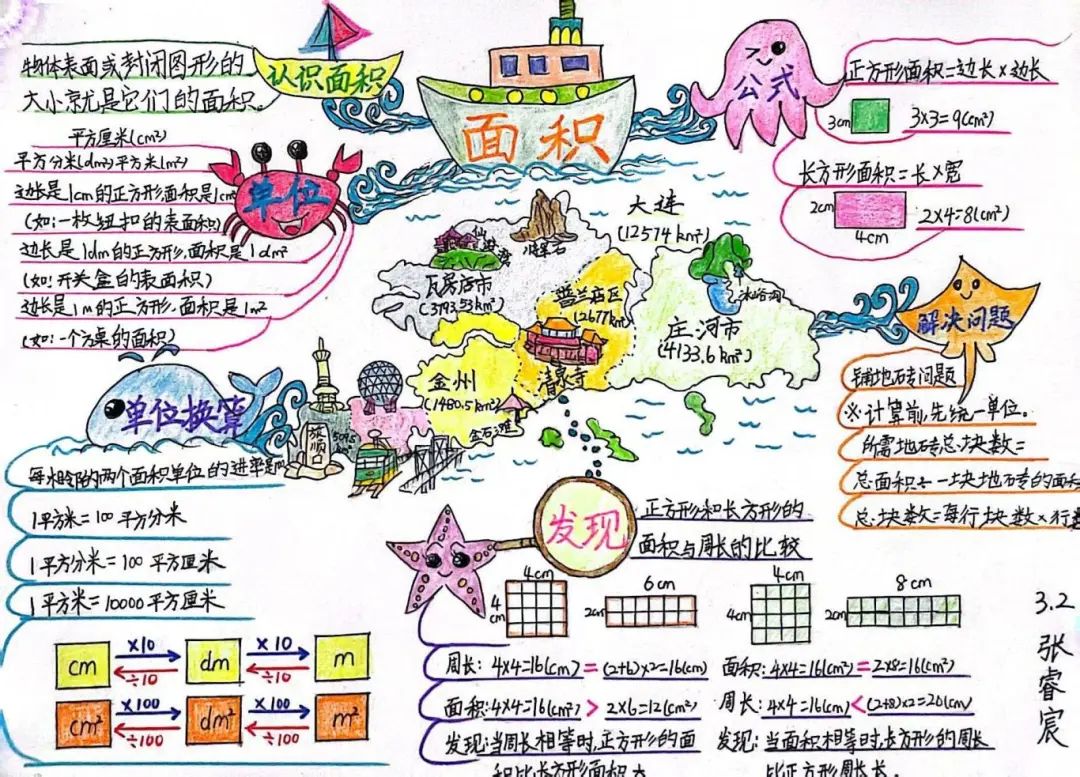 认识面积
物体表面或封闭图形的
大小就是它们的面积。
面积
公式
正方形面积=边长×边长
3cm
3×3=9(cm²)
长方形面积=长×宽
2cm
4cm
2×4=8(cm²)
单位
平方厘米(cm²)
平方分米(dm²)平方米(m²)
边长是1cm的正方形面积是1cm
(如:一枚纽扣的表面积)
边长是1dm的正方形,面积是1dm²
(如:开关盒的表面积)
边长是1m的正方形,面积是1m²
(如:一个方桌的面积)
大连
(12574km²)
仙浴湾
将军石
瓦房店市
(3793.53km²)
普兰店区
(2677km²)
冰峪沟
庄河市
(4133.6km²)
清泉寺
金州
(1480.5km²)
金石滩
旅顺口
解决问题
铺地砖问题
※计算前,先统一单位。
所需地砖总块数=
总面积÷一块地砖的面积
总块数=每行块数×行数
单位换算
每相邻的两个面积单位的进率是
1平方米=100平方分米
1平方分米=100平方厘米
1平方米=10000平方厘米
cm ×10 dm ×10 m
÷10 ÷10
cm² ×100 dm² ×100 m²
÷100 ÷100
发现
正方形和长方形的
面积与周长的比较
4cm
4cm
6cm
2cm
4cm
4cm
8cm
2cm
周长:4×4=16(cm)=(2+6)×2=16(cm)
面积:4×4=16(cm²)>2×6=12(cm²)
发现:当周长相等时,正方形的面
积比长方形面积大
面积:4×4=16(cm²)=2×8=16(cm²)
周长:4×4=16(cm)<(2+8)×2=20(cm)
发现:当面积相等时,长方形的周长
比正方形周长长。
3.2
张睿宸